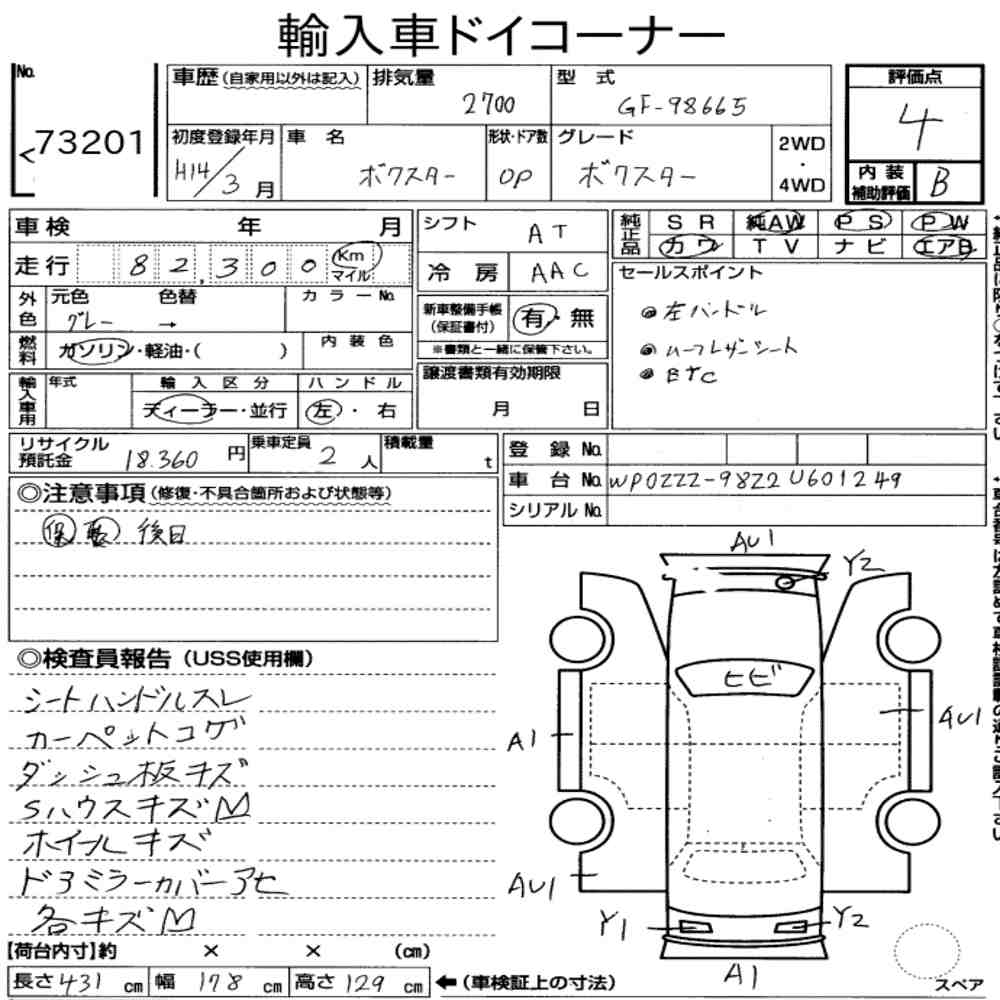 輸入車ドイコーナー
No. 73201
車歴(自家用以外は記入)
排気量 2700
型式 GF-98665
評価点 4
初度登録年月 H14/3月
車名 ボクスター
形状・ドア数 OP
グレード ボクスター
2WD・4WD
内装補助評価 B
車検 年 月
シフト AT
純正品 SR 純AW PS PW
カワ TV ナビ エアB
走行 82,300 Km マイル
冷房 AAC
セールスポイント
左ハンドル
ハーフレザーシート
ETC
外色 元色 グレー → 色替 カラーNo.
新車整備手帳(保証書付) 有・無
※書類と一緒に保管下さい。
燃料 ガソリン・軽油・( )
内装色
譲渡書類有効期限
月 日
輸入車用 年式 輸入区分 ハンドル
ディーラー・並行 左・右
リサイクル預託金 18.360円
乗車定員 2人
積載量 t
登録No.
車台No. WP0ZZZ-98Z2U601249
シリアルNo.
◎注意事項(修復・不具合箇所および状態等)
保 取 後日
◎検査員報告(USS使用欄)
シートハンドルスレ
カーペットコゲ
ダッシュ板キズ
Sハウスキズ M
ホイールキズ
ドアミラーカバーアセ
各キズ M
AU1
Y2
ヒビ
A1
AU1
AU1
Y1
Y2
A1
スペア
【荷台内寸】約 × × (cm)
長さ 431 cm 幅 178 cm 高さ 129 cm ←(車検証上の寸法)